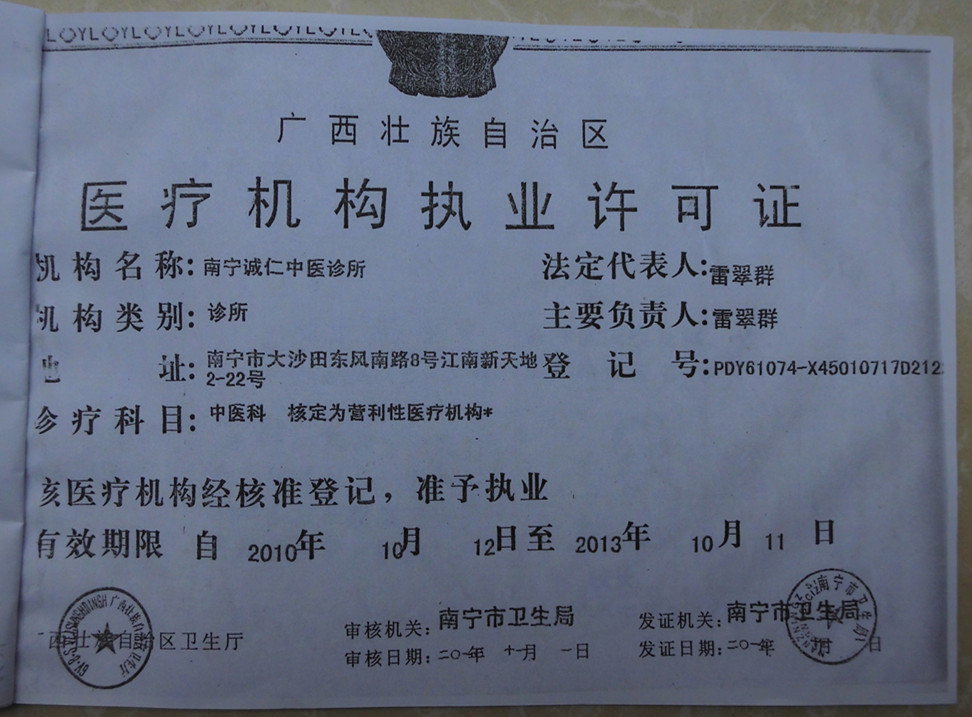 广西壮族自治区
医疗机构执业许可证
机构名称:南宁诚仁中医诊所 法定代表人:雷翠群
机构类别:诊所 主要负责人:雷翠群
地 址:南宁市大沙田东风南路8号江南新天地2-22号 登 记 号:PDY61074-X45010717D212
诊疗科目:中医科 核定为营利性医疗机构*
该医疗机构经核准登记，准予执业
有效期限 自 2010年 10月 12日至 2013年 10月 11 日
广西壮族自治区卫生厅
审核机关:南宁市卫生局 发证机关:南宁市卫生局
审核日期:二〇一 年 十一月 一日 发证日期:二〇一 年 月 日